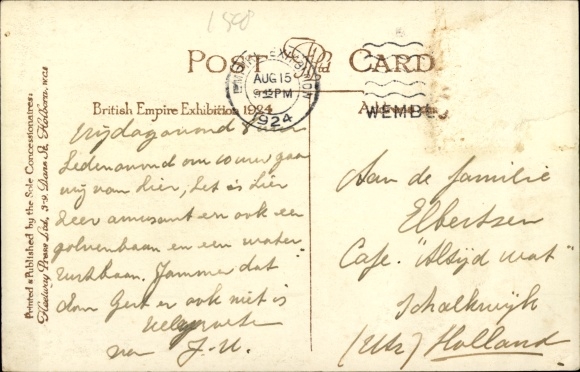 1598
POST CARD
BRITISH EMPIRE EXHIBITION
AUG 15
9-15 PM
1924
WEMBL
British Empire Exhibition 1924
Printed & Published by the Sole Concessionaires:
Fleetway Press Ltd, 3-9, Dane St, Holborn, WC2
Vrijdagavond
Hedenavond om 10 uur gaan
wij van hier, het is hier
zeer amusant en ook een
golvenbaan en een water
rutschbaan. Jammer dat
Gert er ook niet is
Veel groeten
van J-U.
Aan de familie
Elbertsen
Cafe. "Altijd wat"
Schalkwijk
(Utr) Holland